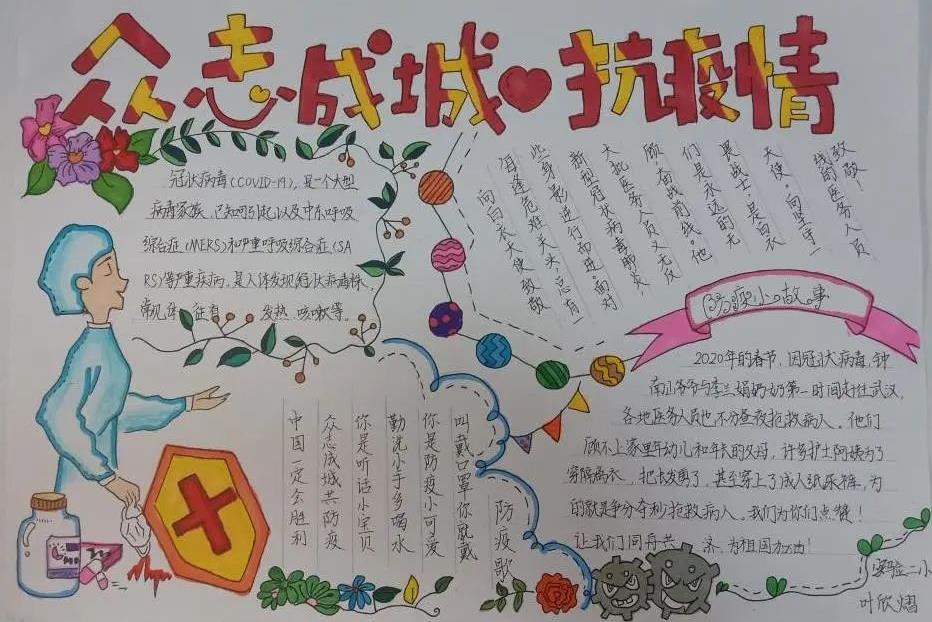 众志成城 抗疫情
冠状病毒(COVID-19),是一个大型
病毒家族,已知可引起以及中东呼吸
综合症(MERS)和严重呼吸综合症(SA
RS)等严重疾病,是人体发现冠状病毒株,
常见体征有 发热、咳嗽等。
向白衣天使致敬
每逢危难关头,总有一
些身影逆行而进,面对
新型冠状病毒肺炎,
大批医务人员义无反
顾,奋战前线,他
们是永远的无
畏战士,是白衣
天使,向坚守一
线的医务人员
致敬!
防疫小故事
2020年的春节,因冠状病毒,钟
南山爷爷与李兰娟奶奶第一时间赶往武汉,
各地医务人员也不分昼夜抢救病人。他们
顾不上家里年幼儿和年长的父母,许多护士阿姨为了
穿隔离衣,把长发剪了,甚至穿上了成人纸尿裤,为
的就是争分夺秒抢救病人。我们为你们点赞!
让我们同舟共 济,为祖国加油!
防疫歌
叫戴口罩你就戴
你是防疫小可爱
勤洗小手多喝水
你是听话小宝贝
众志成城共防疫
中国一定会胜利
实验二小
叶欣熠